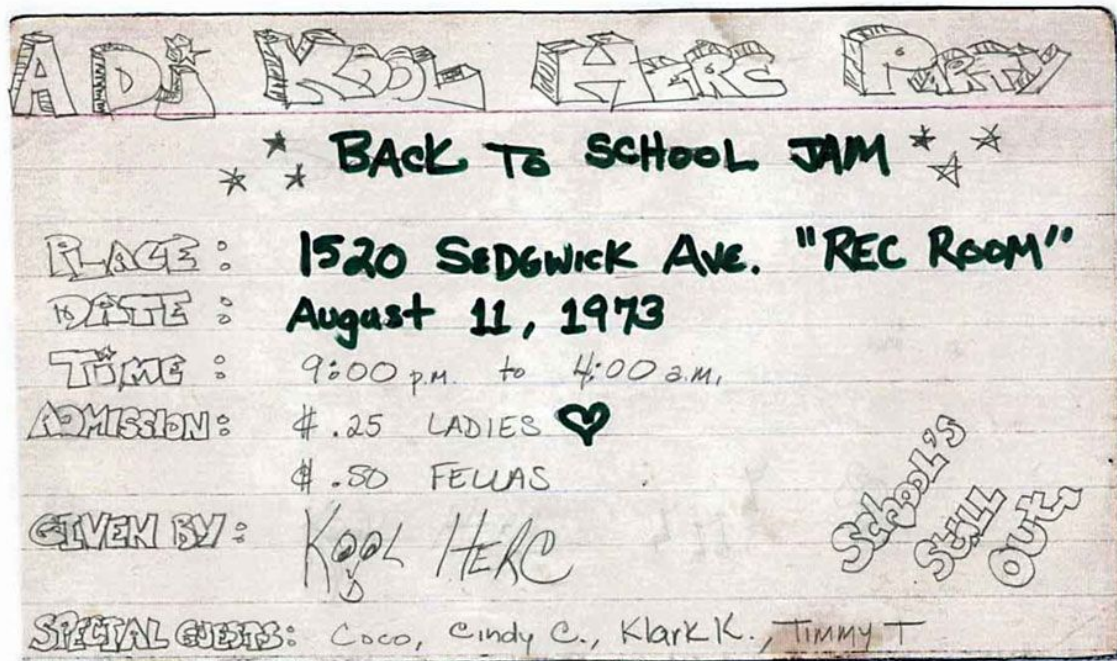 A DJ KOOL HERC PARTY
BACK TO SCHOOL JAM
PLACE: 1520 SEDGWICK AVE. "REC ROOM"
DATE: August 11, 1973
TIME: 9:00 P.M. to 4:00 a.m.
ADMISSION: $.25 LADIES
$.50 FELLAS
GIVEN BY: KOOL HERC
SCHOOL'S
STILL
OUT.
SPECIAL GUESTS: Coco, Cindy C., Klark K., TIMMY T